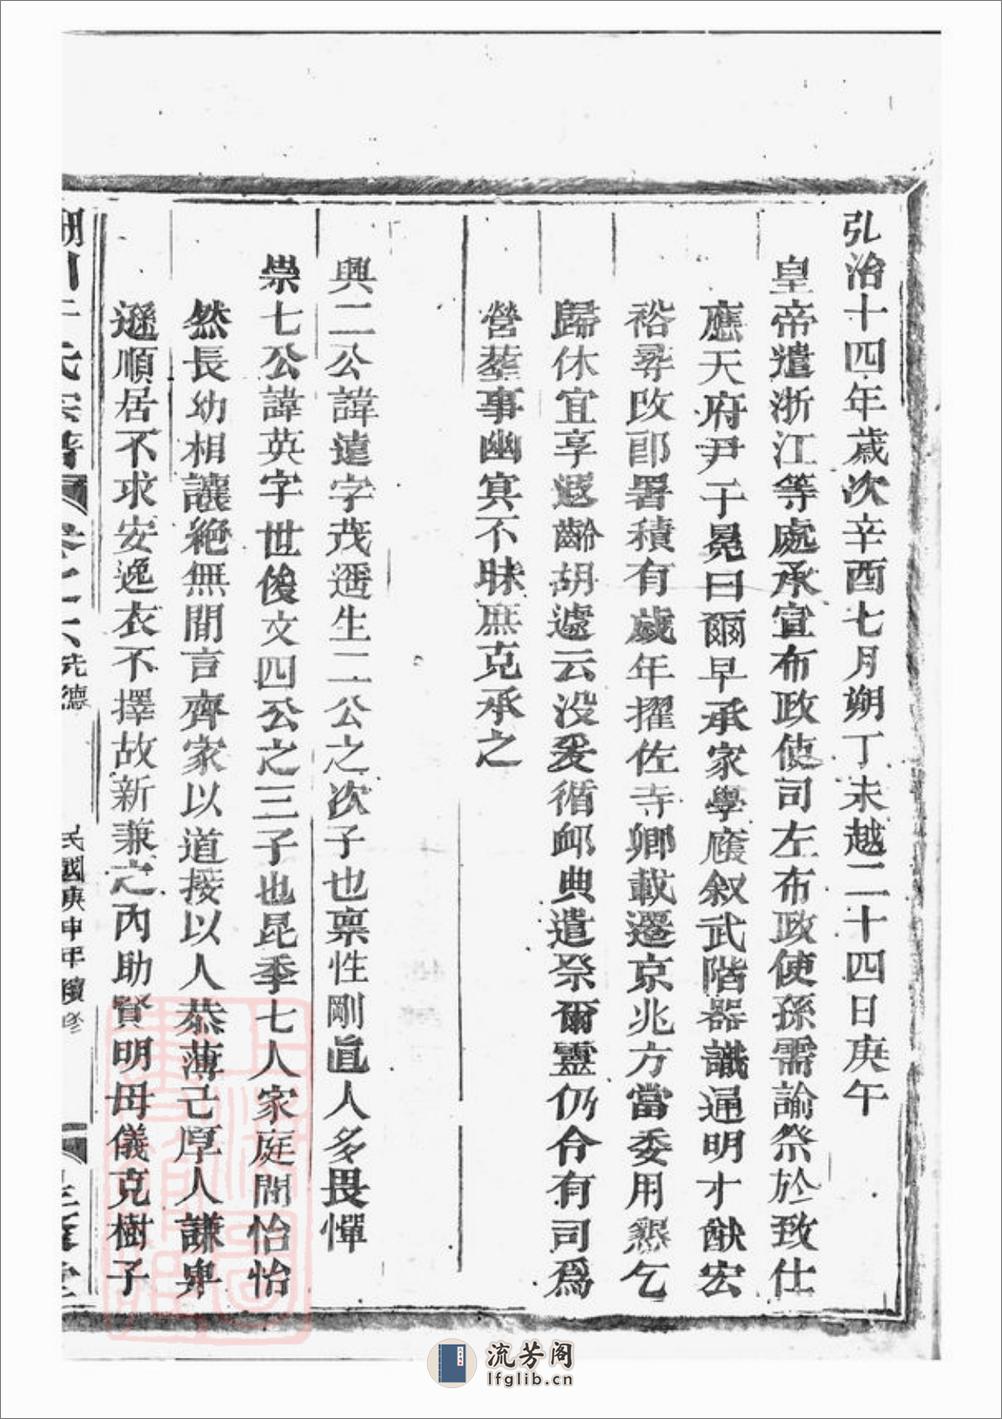 弘治十四年歲次辛酉七月朔丁未越二十四日庚午
皇帝遣浙江等處承宣布政使司左布政使孫需諭祭於致仕
應天府尹于冕曰爾早承家學廕叙武階器識通明才猷宏
裕尋改郎署積有歲年擢佐寺卿載遷京兆方當委用懇乞
歸休宜享遐齡胡遽云没爰循卹典遣祭爾靈仍令有司爲
營塟事幽㝠不昧庶克承之
興二公諱遠字茂遜生二公之次子也禀性剛直人多畏憚
崇七公諱英字世俊文四公之三子也昆季七人家庭間怡怡
然長幼相讓絶無間言齊家以道接以人恭薄己厚人謙卑
遜順居不求安逸衣不擇故新兼之内助賢明母儀克樹子
氏宗譜 卷之六 先德 民國庚申年續修 堂
流芳阁
lfglib.cn